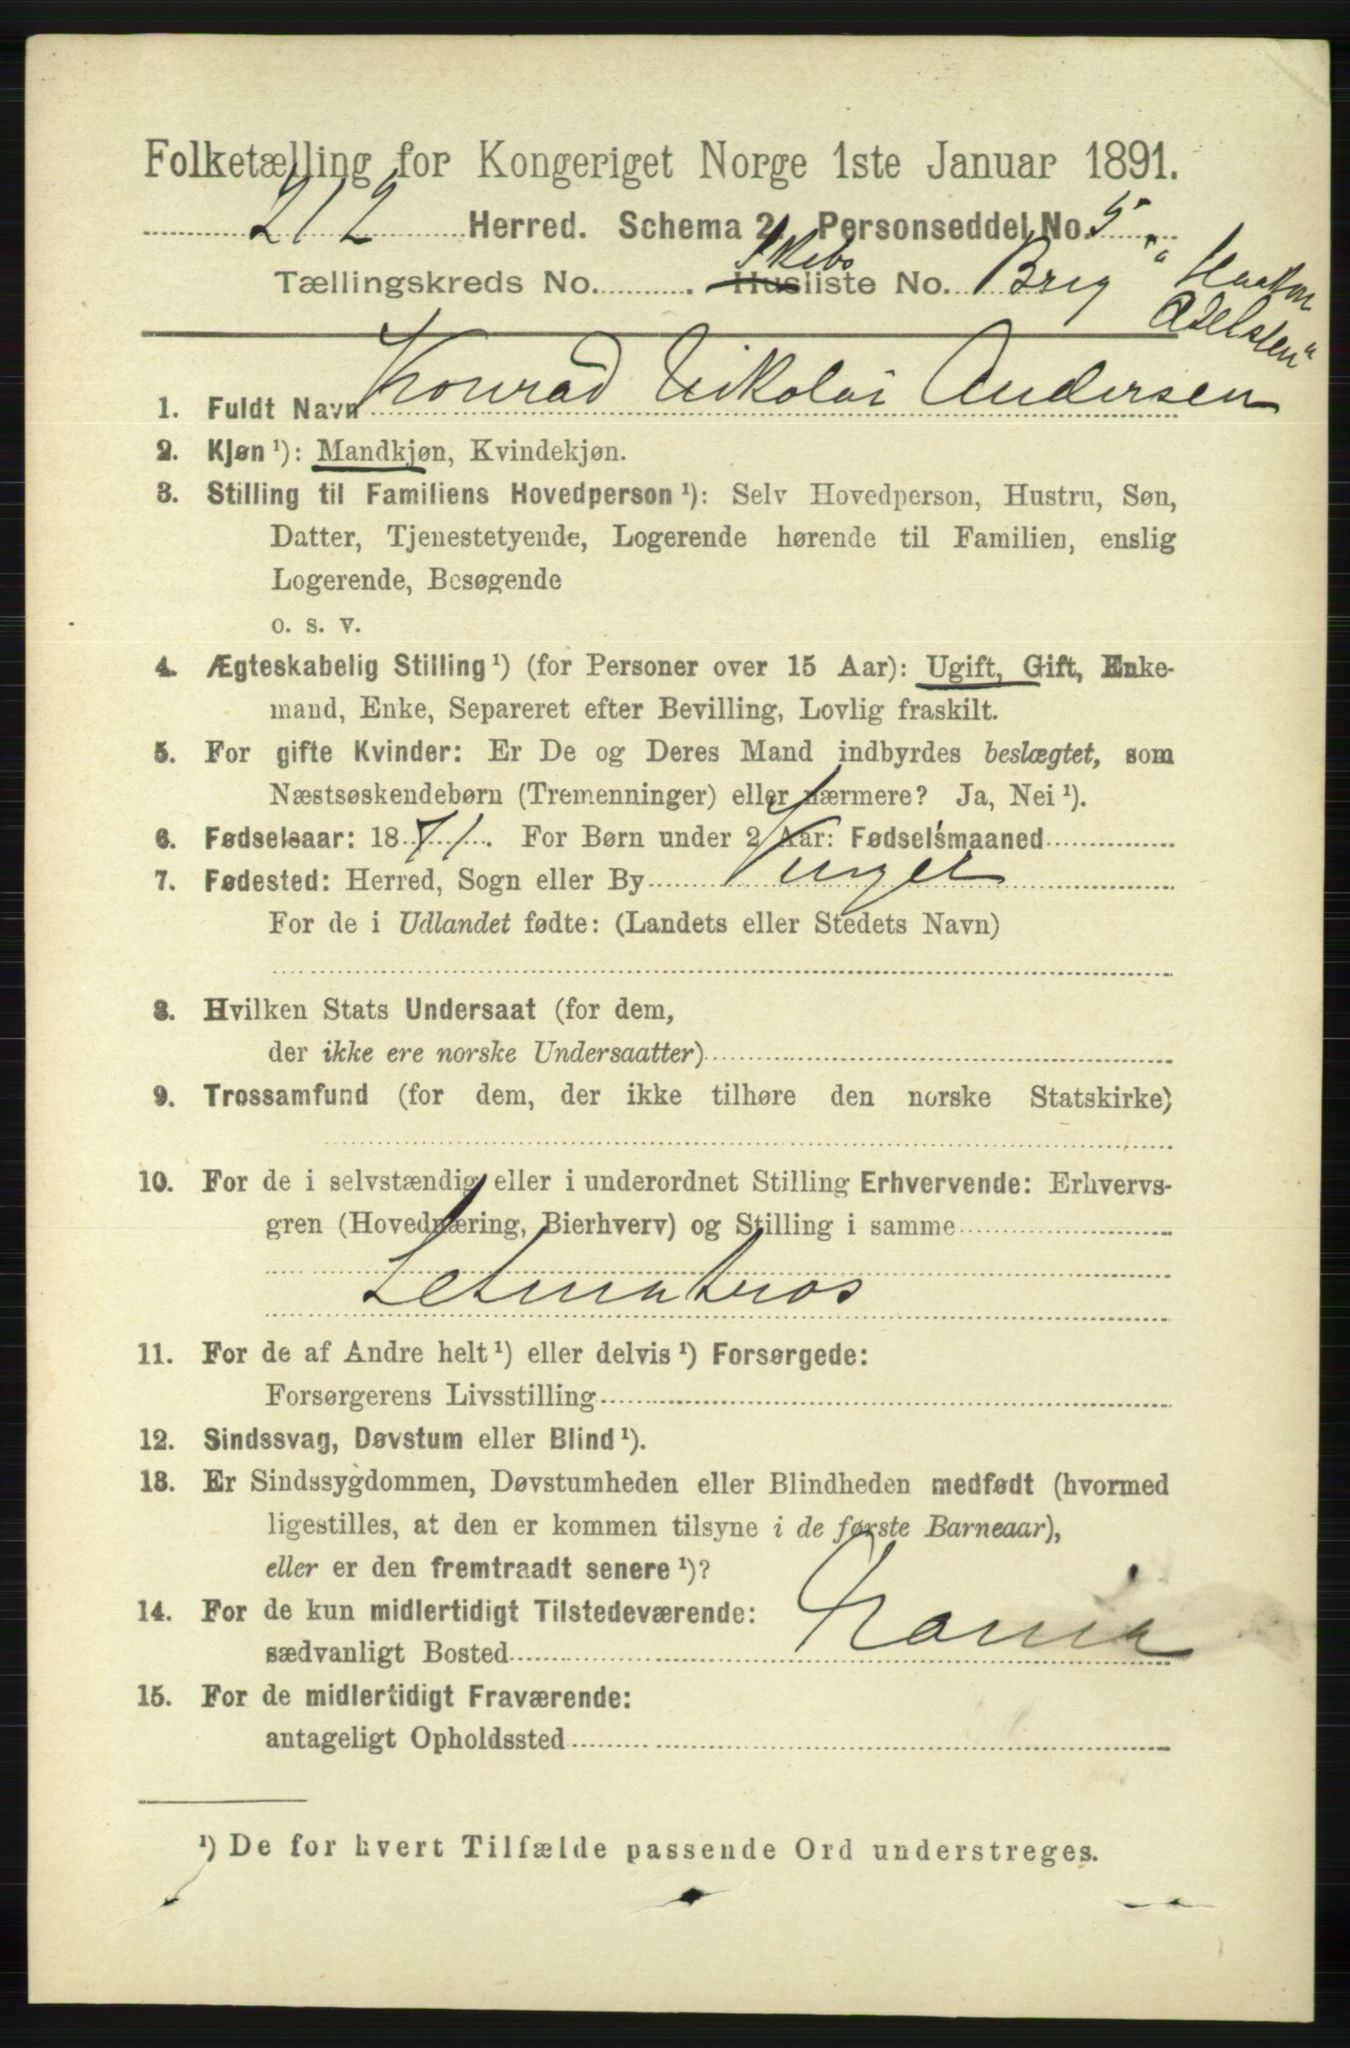 Folketælling for Kongeriget Norge 1ste Januar 1891.
212 Herred. Schema 2. Personseddel No. 5
Tællingskreds No. . Skibsliste No. Brig "Haakon
Adelsten"
1. Fuldt Navn Konrad Nikolai Andersen
2. Kjøn ¹): Mandkjøn, Kvindekjøn.
3. Stilling til Familiens Hovedperson ¹): Selv Hovedperson, Hustru, Søn,
Datter, Tjenestetyende, Logerende hørende til Familien, enslig
Logerende, Besøgende
o. s. v.
4. Ægteskabelig Stilling ¹) (for Personer over 15 Aar): Ugift, Gift, Enke-
mand, Enke, Separeret efter Bevilling, Lovlig fraskilt.
5. For gifte Kvinder: Er De og Deres Mand indbyrdes beslægtet, som
Næstsøskendebørn (Tremenninger) eller nærmere? Ja, Nei ¹).
6. Fødselsaar: 1871. For Børn under 2 Aar: Fødselsmaaned
7. Fødested: Herred, Sogn eller By
For de i Udlandet fødte: (Landets eller Stedets Navn)
8. Hvilken Stats Undersaat (for dem,
der ikke ere norske Undersaatter)
9. Trossamfund (for dem, der ikke tilhøre den norske Statskirke)
10. For de i selvstændig eller i underordnet Stilling Erhvervende: Erhvervs-
gren (Hovednæring, Bierhverv) og Stilling i samme
Letmatros
11. For de af Andre helt ¹) eller delvis ¹) Forsørgede:
Forsørgerens Livsstilling
12. Sindssvag, Døvstum eller Blind ¹).
13. Er Sindssygdommen, Døvstumheden eller Blindheden medfødt (hvormed
ligestilles, at den er kommen tilsyne i de første Barneaar),
eller er den fremtraadt senere ¹)?
14. For de kun midlertidigt Tilstedeværende:
sædvanligt Bosted
15. For de midlertidigt Fraværende:
antageligt Opholdssted
¹) De for hvert Tilfælde passende Ord understreges.